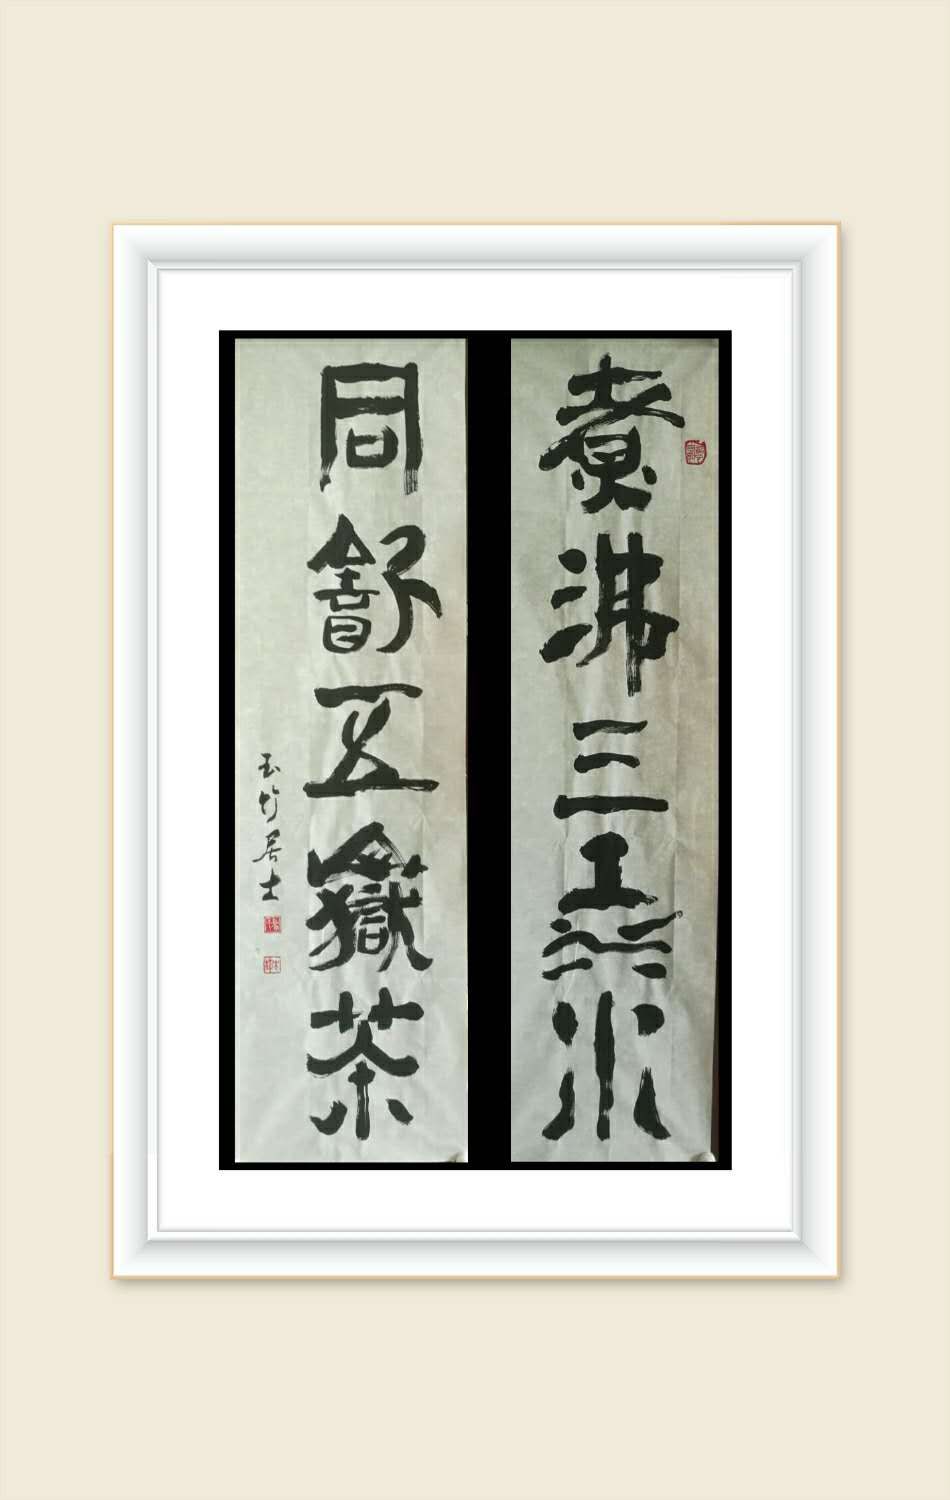 煮沸三江水
同飲五嶽茶
玉竹居士